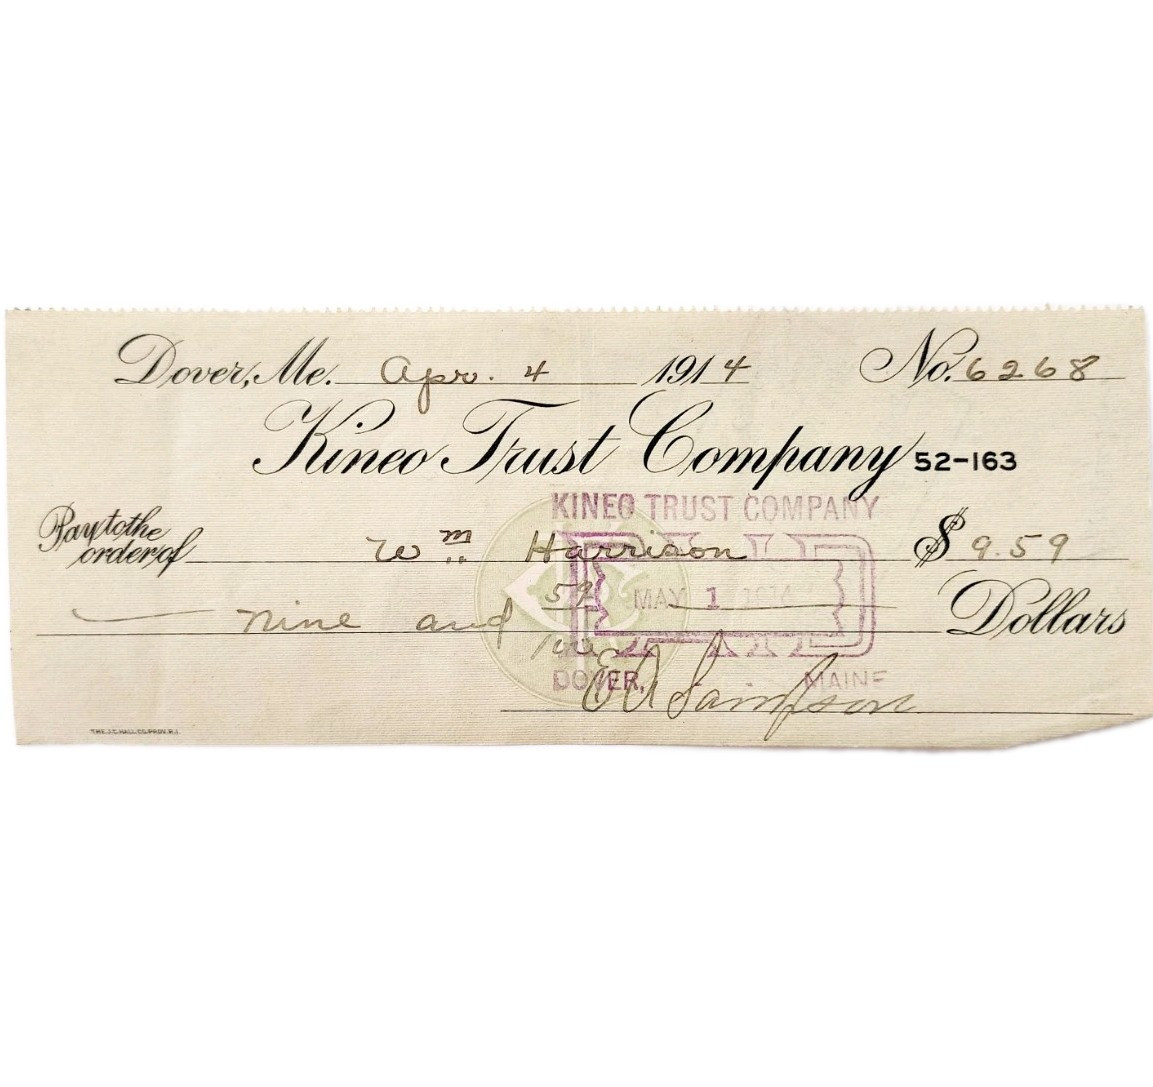 Dover, Me. Apr. 4 1914 No. 6268
Kineo Trust Company 52-163
KINEO TRUST COMPANY
Pay to the
order of Wm Harrison $ 9.59
PAID
MAY 1 1914
Nine and 59/100 Dollars
DOVER, MAINE
E A Sampson
THE J.C. HALL CO. PROV. R.I.